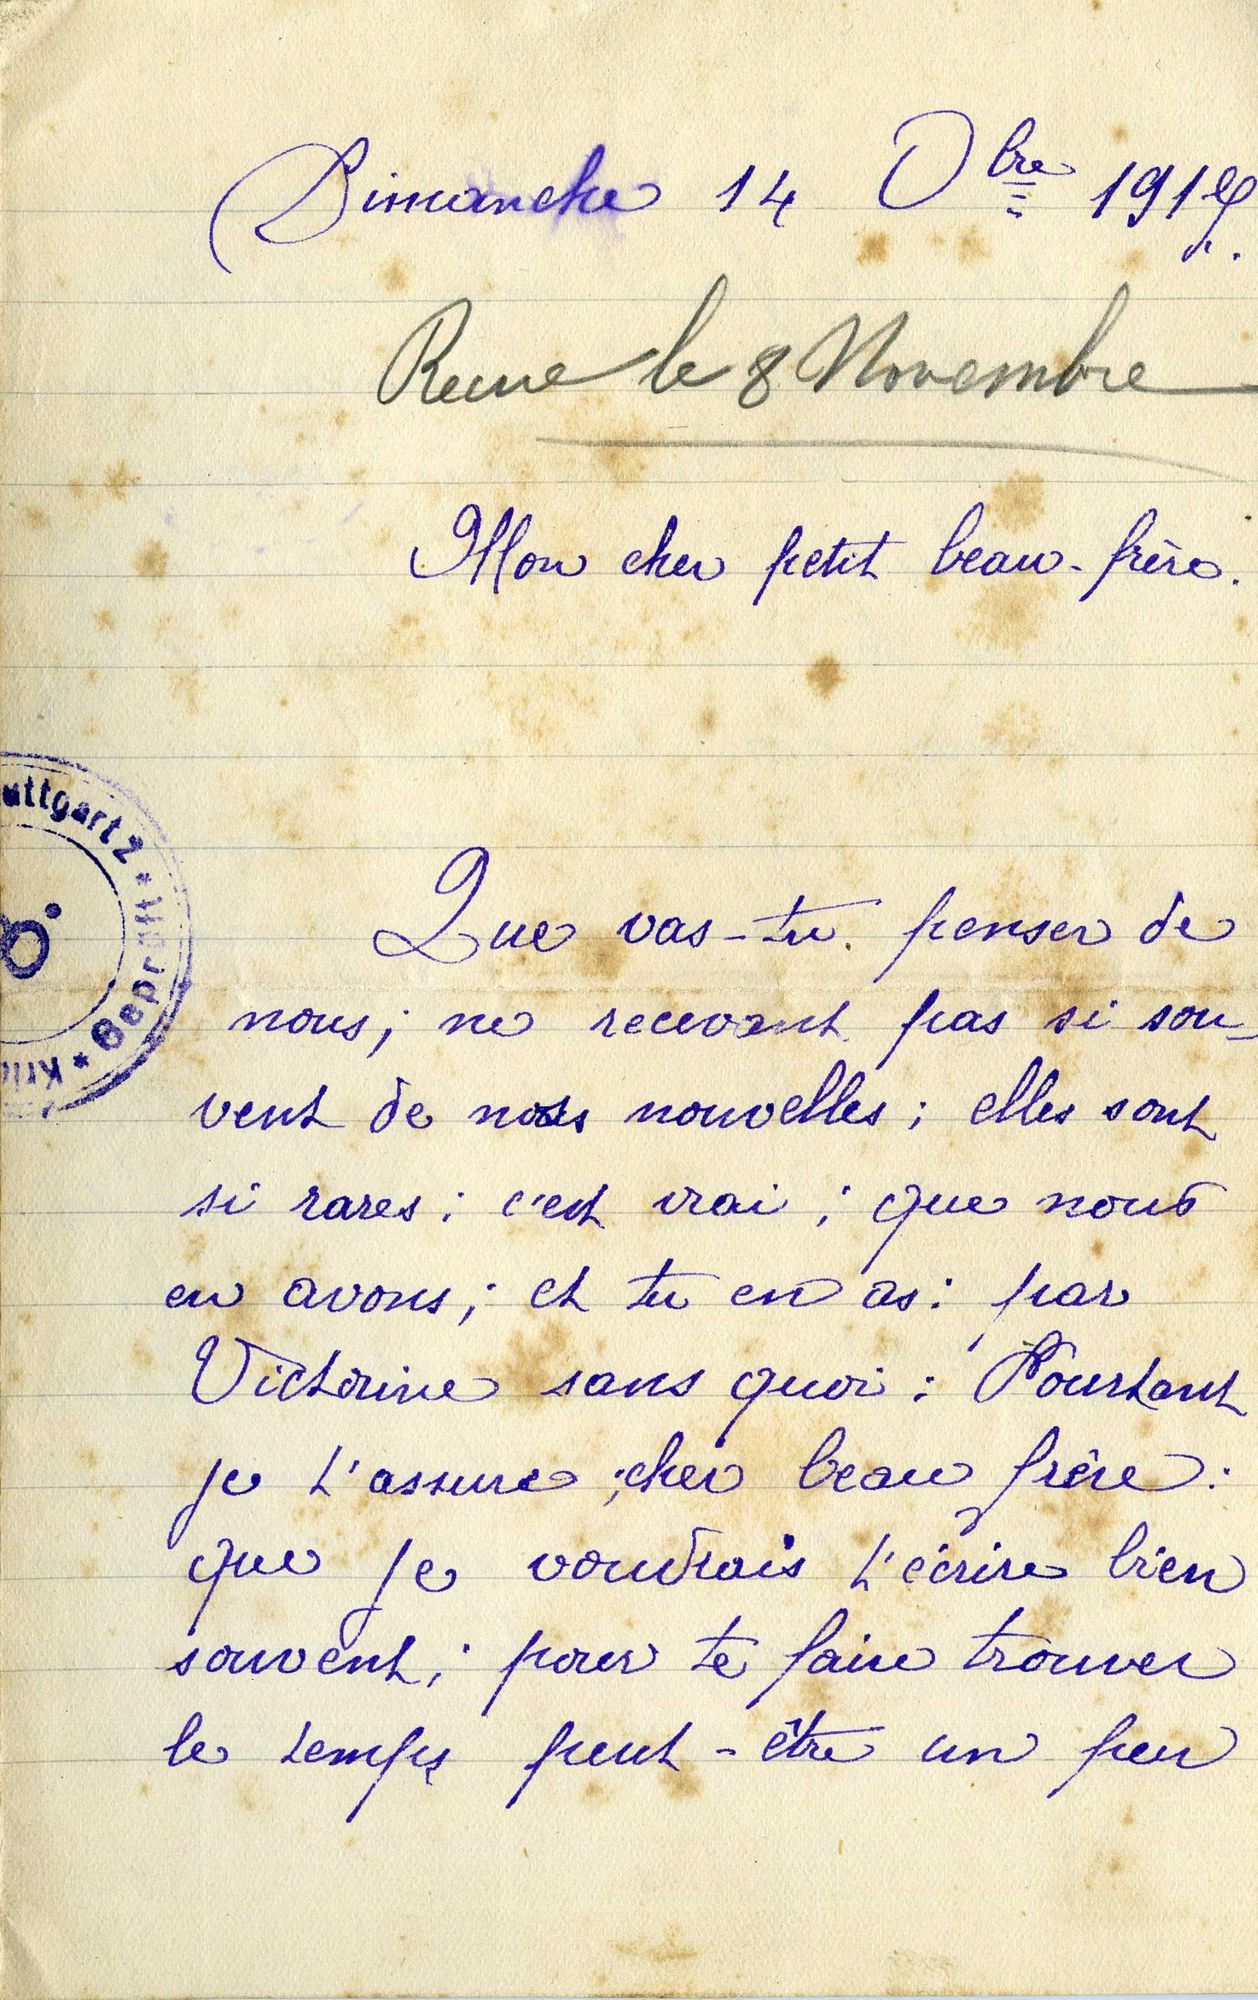 Dimanche 14 Obre 191
Recue le 8 Novembre
Mon cher petit beau-frère.
uttgart 2 * Geprüft *
8.
Que vas-tu penser de
nous; ne recevant pas si sou-
vent de nos nouvelles; elles sont
si rares; c'est vrai; que nous
en avons; et tu en as: par
Victorine sans quoi: Pourtant
je t'assure; cher beau frère:
que je voudrais t'écrire bien
souvent; pour te faire trouver
le temps peut-être un peu